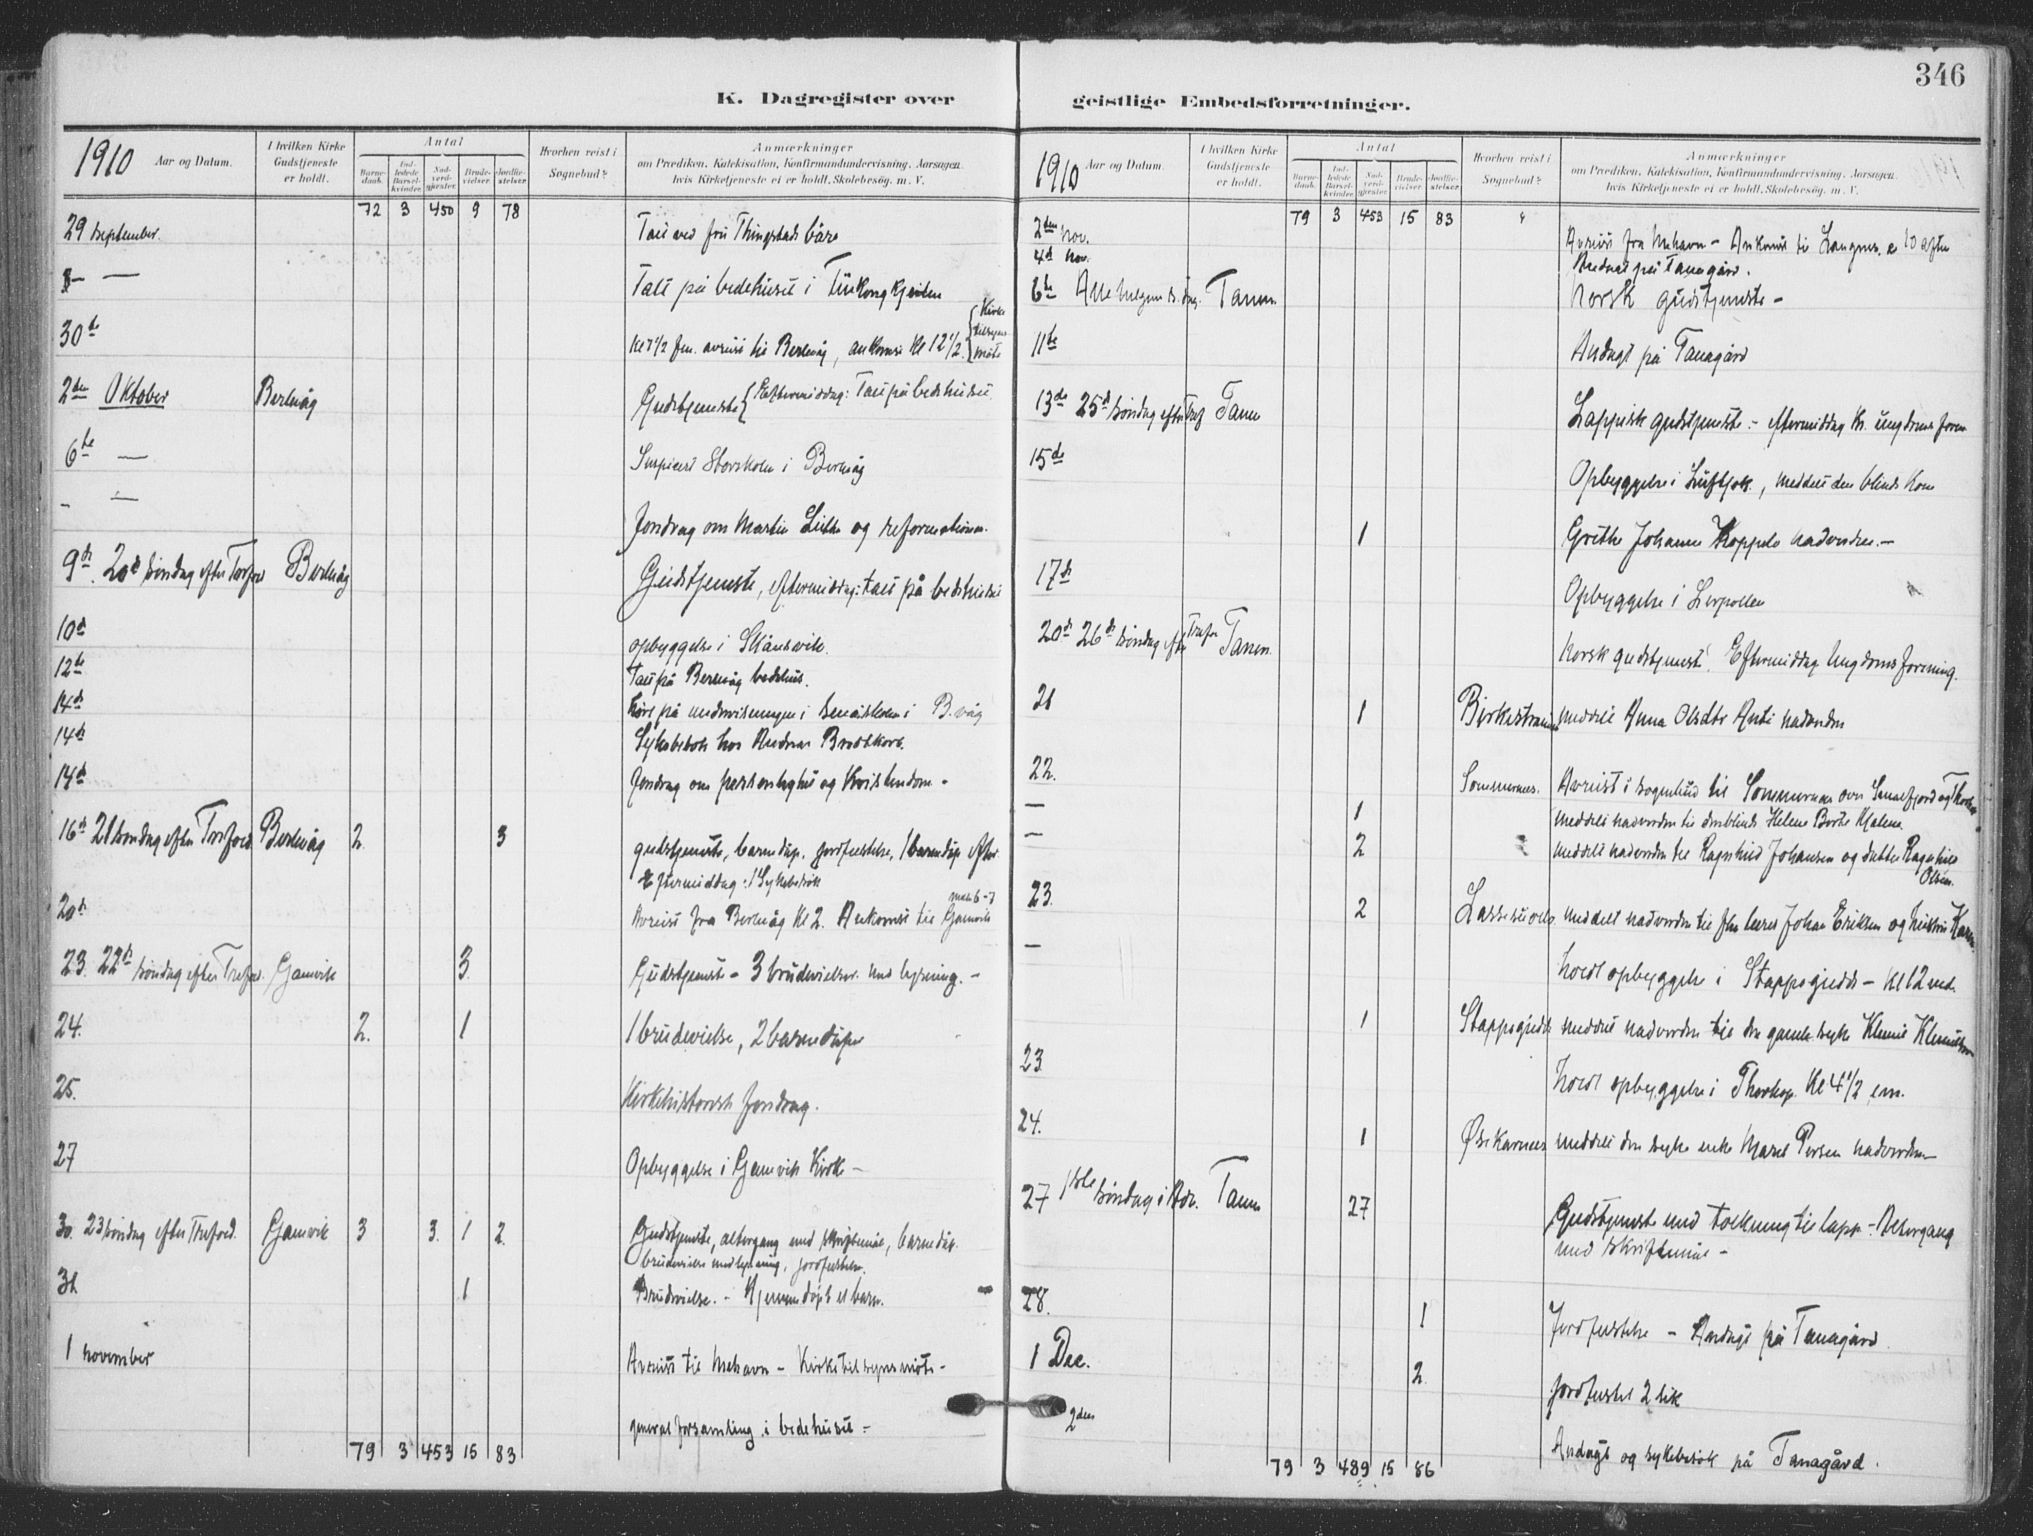 346
K. Dagregister over
1910 Aar og Datum.
I hvilken Kirke Gudstjeneste er holdt.
Antal
Barne-daab.
Ind-ledede Barsel-kvinder.
Nad-verd-gjæster.
Brude-vielser.
Jordfæ-stelser.
Hvorhen reist i Sognebud?
Anmærkninger
om Prædiken, Katekisation, Konfirmandundervisning, Aarsagen, hvis Kirketjeneste ei er holdt, Skolebesøg, m. V.
72 3 450 9 78
29 september. Tale ved fru Thingstads båre
— Tale på bedehuset i
30te Kl 7 1/2 fm. avreist til Berlevåg, ankomst Kl 12 1/2. {Kirke tilsyns møte
2den Oktober Berlevåg Gudstjeneste {Eftermiddag: Tale på bedehuset.
6te — Inspicert Storskolen i Berlevåg
- — foredrag om Martin Luther og reformationen.
9de. 20de søndag efter Trefold Berlevåg Gudstjeneste, eftermiddag: tale på bedehuset
10de opbyggelse i
12te Tale på Berlevåg bedehus.
14de Hørt på undervisningen i småskolen i B.våg
14de Sykebesøk hos Andreas Brodtkorb.
14de foredrag om personlighet og Kristendom -
16de 21 søndag efter Trefold Berlevåg 2. 3 gudstjeneste, barnedåp, jordfestelse, 1 barnedåp efter
Eftermiddag: 1 Sykebesøk
20de Avreist fra Berlevåg Kl 2. Ankomst til Gamvik
23. 22de søndag efter Trefold. Gamvik 3. Gudstjeneste - 3 brudevielser med lysning. -
24. 2. 1 1 brudevielse, 2 barnedåper
25. Kirkehistorisk foredrag.
27 Opbyggelse i Gamvik Kirke —
30. 23 søndag efter Trefold. Gamvik 3 3. 1 2. Gudstjeneste, altergang med skriftemål, barnedåp.
brudevielse med lysning, jordfestelse.
31 1 Brudevielse. - Hjemmedøpt et barn.
1 november Avreist til Mehavn - Kirketilsynsmøte -
generalforsamling i bedehuset -
79 3 453 15 83
geistlige Embedsforretninger.
1910 Aar og Datum.
I hvilken Kirke Gudstjeneste er holdt.
Antal
Barne-daab.
Ind-ledede Barsel-kvinder.
Nad-verd-gjæster.
Brude-vielser.
Jordfæ-stelser.
Hvorhen reist i Sognebud?
Anmærkninger
om Prædiken, Katekisation, Konfirmandundervisning, Aarsagen, hvis Kirketjeneste ei er holdt, Skolebesøg, m. V.
79 3 453 15 83
2den nov. Avreist fra Mehavn - Ankomst til Langnes. 10 aften
4de nov. Andagt på Tanagård.
6te Alle helgens dag. Tanen Norsk gudstjeneste -
11te Andagt på Tanagård
13de 25de søndag efter Tref Tanen Lappisk gudstjeneste - eftermiddag Kr. ungdoms foren
15de Opbyggelse i Luftjok, meddelt den blinde Kone
1 Grethe Johanne nadverden. -
17de Opbyggelse i Leirpollen
20de 26de søndag efter Trefo Tanen. Norsk gudstjeneste. Eftermiddag Ungdomsforening.
21 1 Birkestrand meddelt Anna Olsdtr Anti nadverden
22. Sommernes. Avreist i sognebud til Sommernes over Smalfjord og
— 1 meddelt nadverden til den blinde Helene Berte Malene
— 2 meddelt nadverden til Ragnhild Johansen og datter Ragnhild Olsen.
23. 2 meddelt nadverden til Johan Eriksen og
— holdt opbyggelse i Stappogiedde - Kl 12 md.
1 Stappogiedde meddelt nadverden til den gamle syke Klemet Klemetsen
23 holdt opbyggelse i Thorhop Kl 4 1/2 em.
24. 1 meddelt den syke enke Maret Persen nadverden -
27 1ste søndag i Adv. Tanen 27 Gudstjeneste med tolkning til lapp - Altergang
med skriftemål -
28. 1 Jordfestelse - Andagt på Tanagård.
1 Dec. 2. Jordfestet 2 lik
2den Andagt og sykebesøk på Tanagård.
79 3 489 15 86